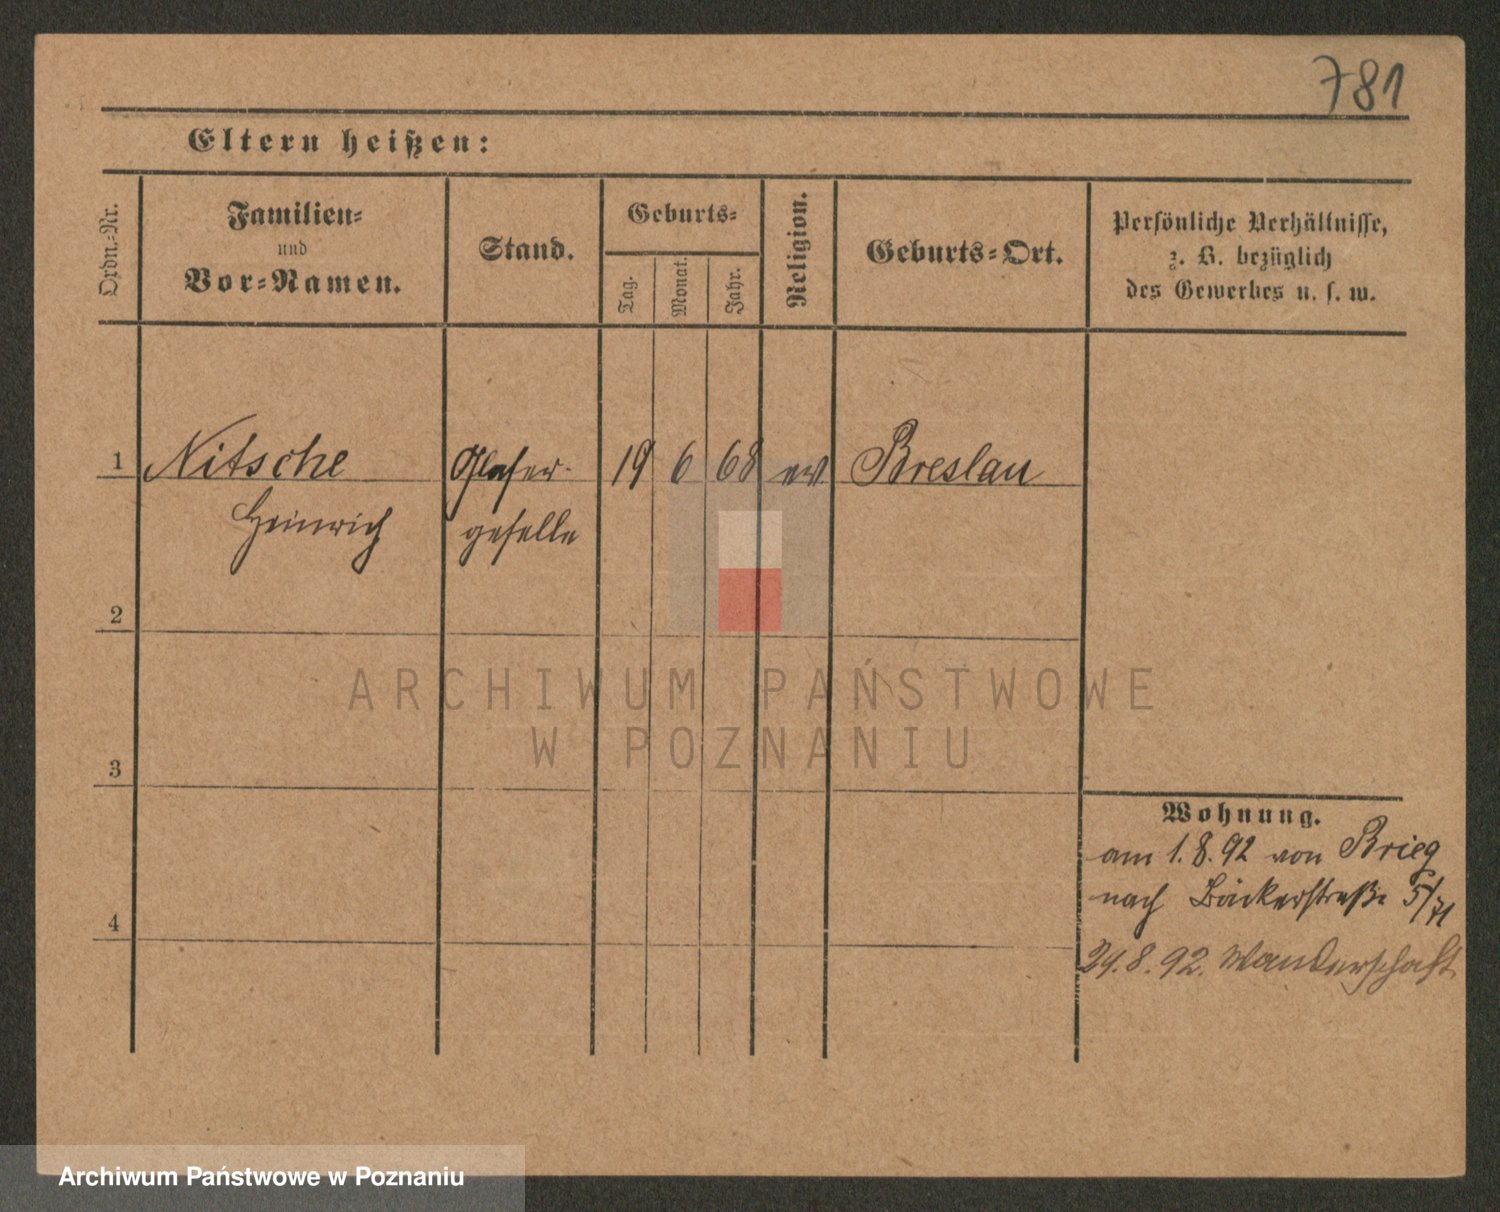 781
Eltern heißen:
Ordn.-Nr.
Familien-
und
Vor-Namen.
Stand.
Geburts-
Tag.
Monat.
Jahr.
Religion.
Geburts-Ort.
Persönliche Verhältnisse,
z. B. bezüglich
des Gewerbes u. s. w.
1 Nitsche Glaser- 19 6 68 ev Breslau
Heinrich geselle
2
3
4
Wohnung.
am 1.8.92 von Brieg
nach Bäckerstraße 5/71
29.8.92. Wanderschaft
ARCHIWUM PAŃSTWOWE
W POZNANIU
Archiwum Państwowe w Poznaniu